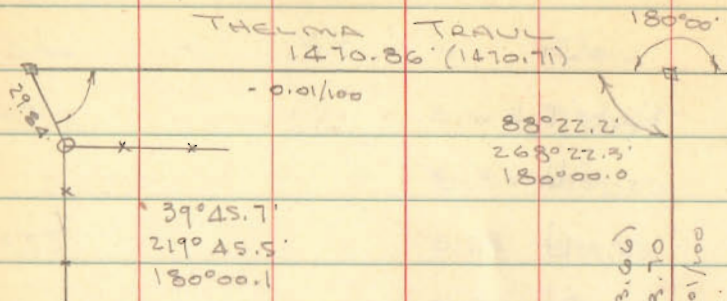 THELMA TRAUL
180°00'
1470.86' (1470.71)
29.84'
- 0.01/100
88°22.2'
268°22.3'
180°00.0
39°45.7'
219°45.5'
180°00.1